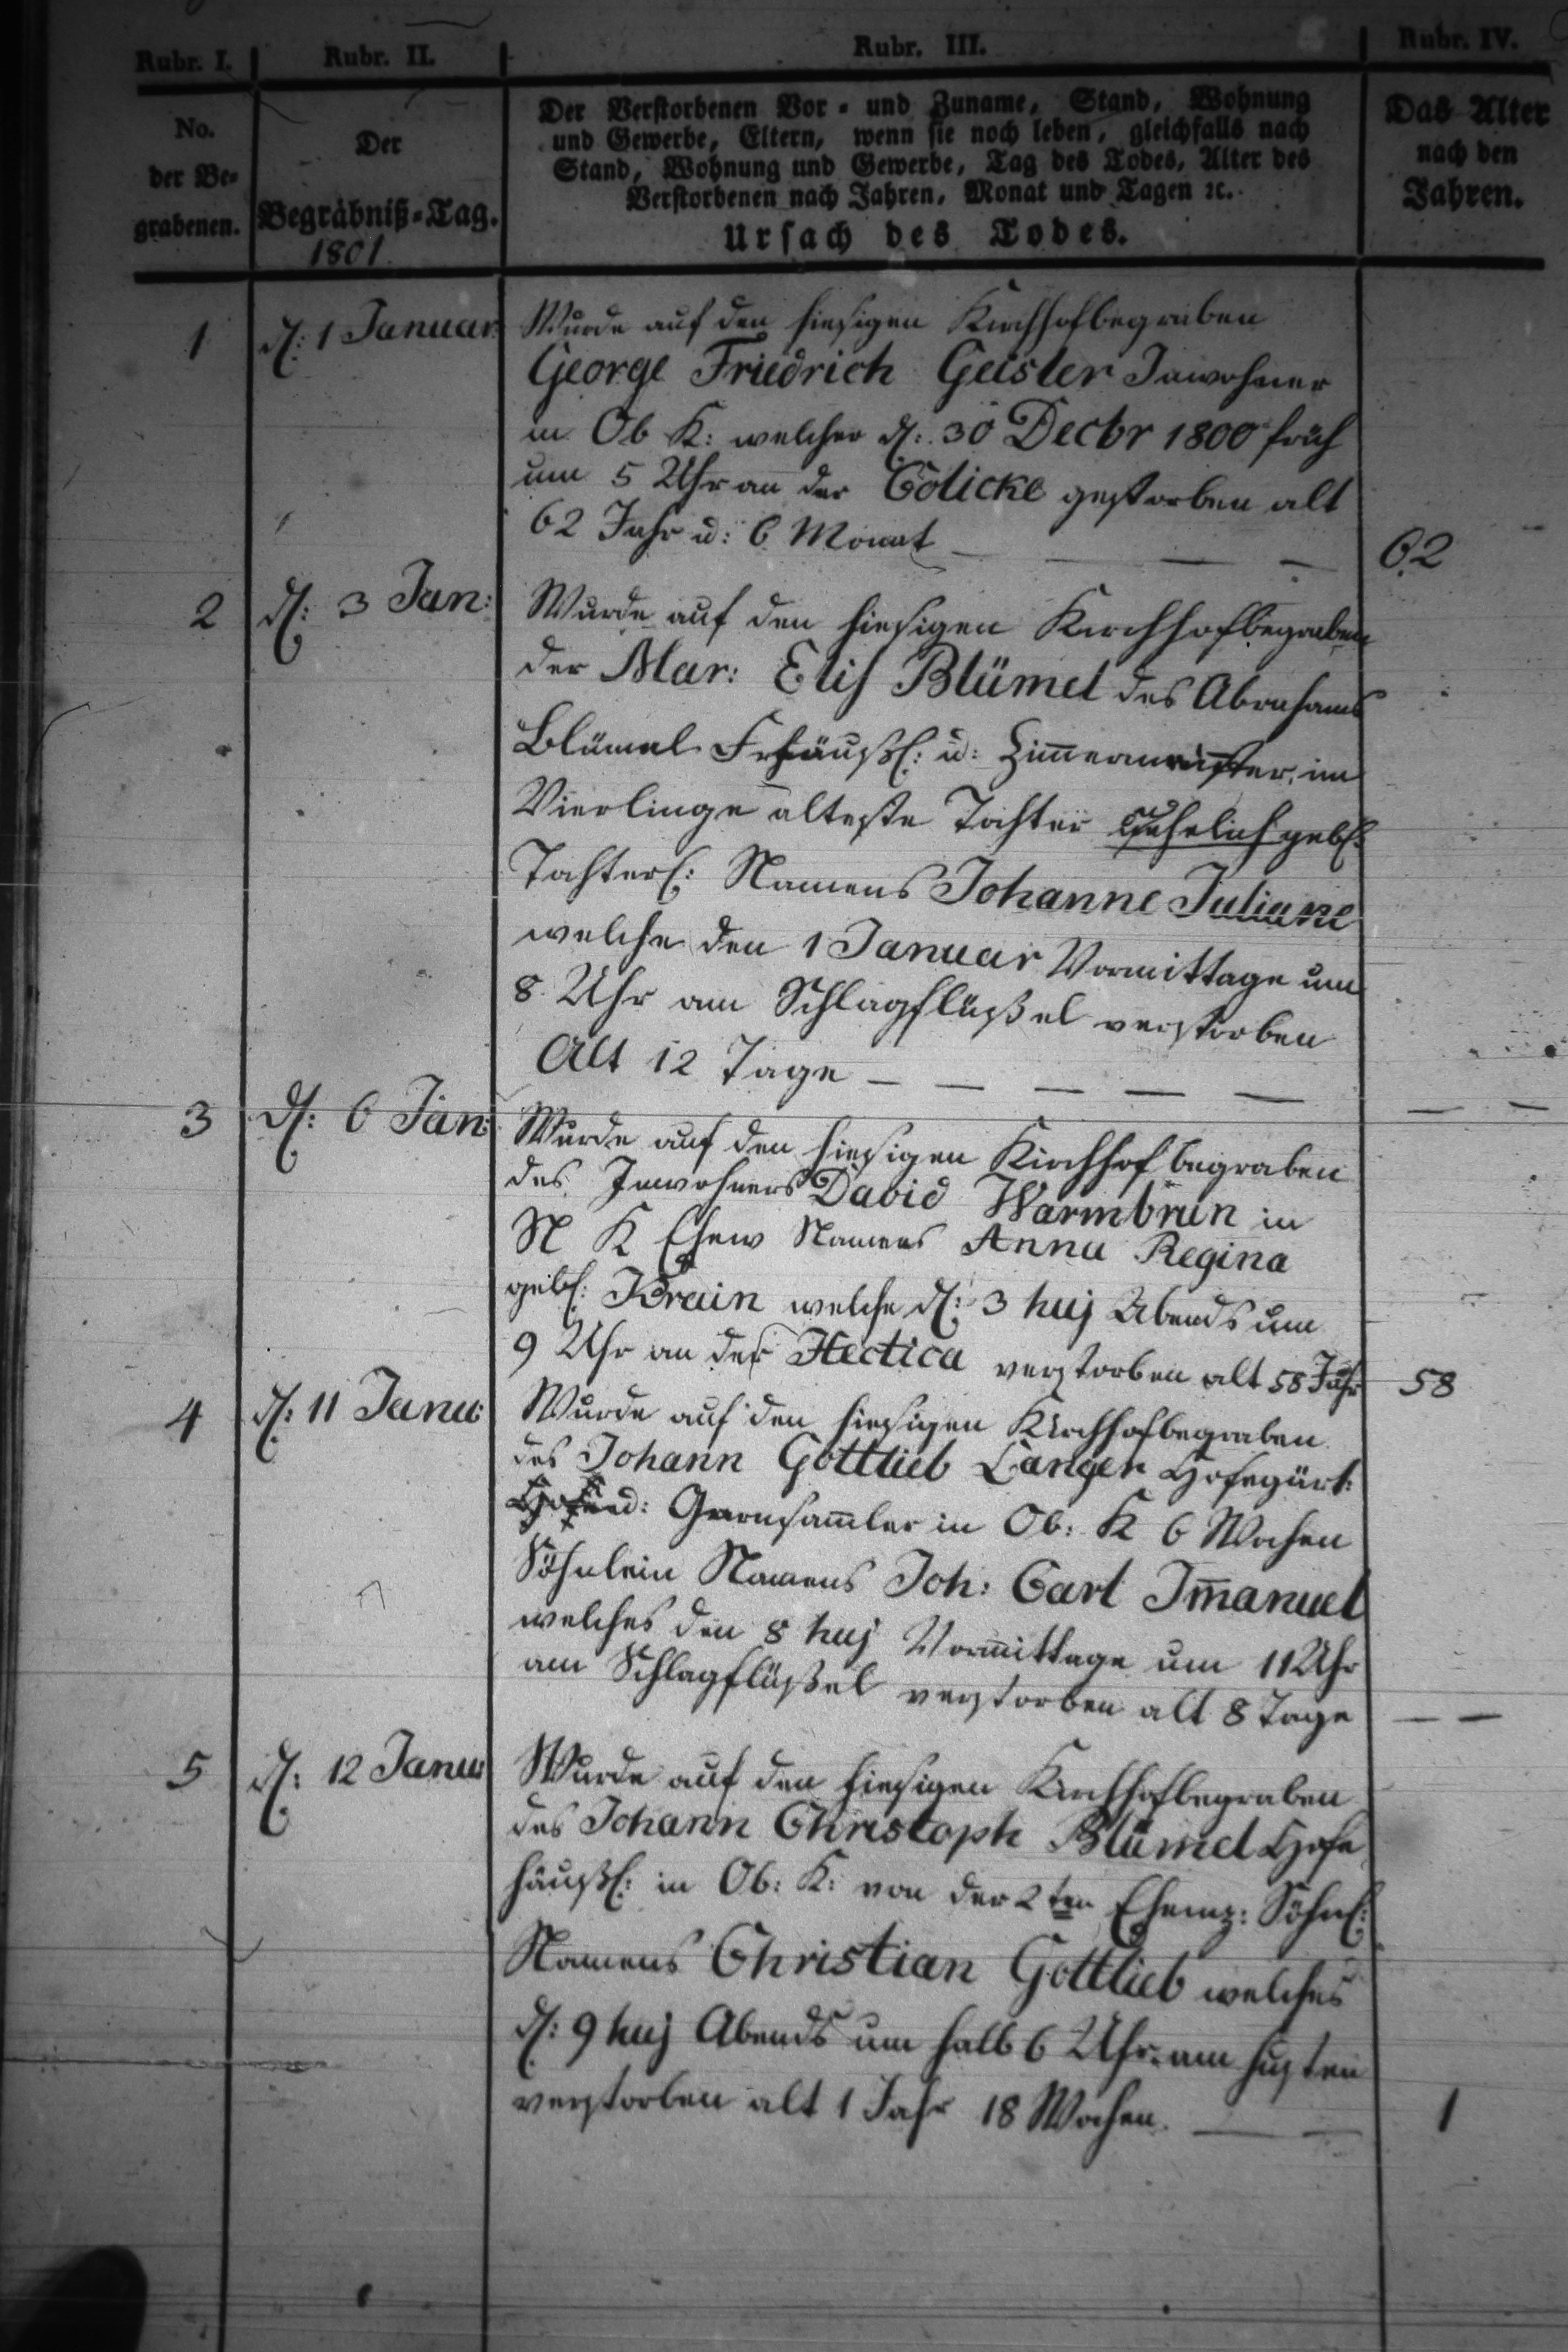 Rubr. I. Rubr. II. Rubr. III. Rubr. IV.
No. der Be-grabenen.
Der Begräbniß-Tag.
1801.
Der Verstorbenen Vor- und Zuname, Stand, Wohnung
und Gewerbe, Eltern, wenn sie noch leben, gleichfalls nach
Stand, Wohnung und Gewerbe, Tag des Todes, Alter des
Verstorbenen nach Jahren, Monat und Tagen ꝛc.
Ursach des Todes.
Das Alter
nach den
Jahren.
1 d: 1 Januar Wurde auf den hiesigen Kirchhof begraben
George Friedrich Geisler Inwohner
in Ob K: welcher d: 30 Decbr 1800 früh
um 5 Uhr an der Colicke gestorben alt
62 Jahr u: 6 Monat 62
2 d: 3 Jan: Wurde auf den hiesigen Kirchhof begraben
der Mar: Elis Blümel des Abrahams
Blümel Frhäußl: u: Zimmermeister im
Vierlinge älteste Tochter unehelich gebl:
Tochterl: Namens Johanne Juliane
welche den 1 Januar Vormittage um
8 Uhr am Schlagflüßel verstorben
Alt 12 Tage – – – – – – –
3 d: 6 Jan: Wurde auf den hiesigen Kirchhof begraben
des Inwohners David Warmbrun in
N K Ehew Namens Anna Regina
gebl: Krain welche d: 3 huj Abends um
9 Uhr an der Hectica verstorben alt 58 Jahr 58
4 d: 11 Janu: Wurde auf den hiesigen Kirchhof begraben
des Johann Gottlieb Langer Hofegärt:
u: Garnsam̄ler in Ob: K 6 Wochen
Söhnlein Namens Joh: Carl Im̄anuel
welches den 8 huj Vormittage um 11 Uhr
am Schlagflüßel verstorben alt 8 Tage – –
5 d: 12 Janu: Wurde auf den hiesigen Kirchhof begraben
des Johann Christoph Blümel Hofe
häußl: in Ob: K: von der 2ten Söhnl:
Namens Christian Gottlieb welches
d: 9 huj Abends um halb 6 Uhr am Husten
verstorben alt 1 Jahr 18 Wochen. 1